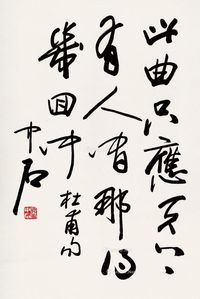 此曲只應天上
有人間那得
幾回聞
杜甫句
中石